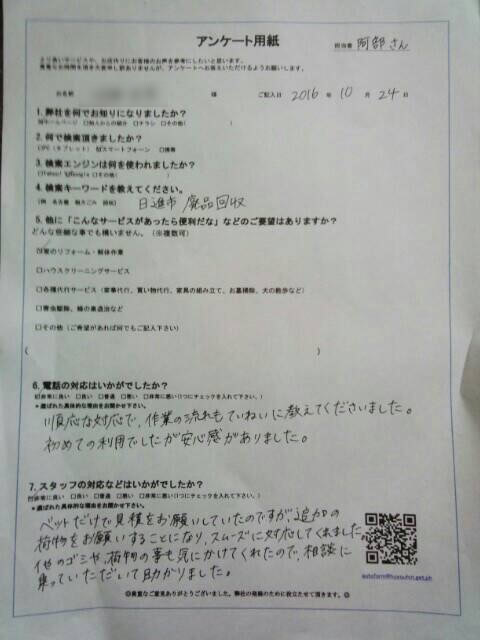 アンケート用紙
担当者 阿部さん
より良いサービスや、お店作りにお客様のお声を参考にしたいと思います。
貴重なお時間を頂き大変申し訳ありませんが、アンケートへお答えいただけるようお願いします。
お名前 様 ご記入日 2016 年 10 月 24 日
1. 弊社を何でお知りになりましたか?
ホームページ □知人からの紹介 □チラシ □その他( )
2. 何で検索頂きましたか?
□PC(タブレット) ☑スマートフォーン □携帯
3. 検索エンジンは何を使われましたか?
□Yahoo! ☑Google □その他( )
4. 検索キーワードを教えてください。
(例 名古屋 粗大ごみ 回収) 日進市 廃品回収
5. 他に「こんなサービスがあったら便利だな」などのご要望はありますか?
どんな些細な事でも構いません。(※複数可)
☑家のリフォーム・解体作業
□ハウスクリーニングサービス
□各種代行サービス(家事代行、買い物代行、家具の組み立て、お墓掃除、犬の散歩など)
□害虫駆除、蜂の巣退治など
□その他(ご希望があれば何でもご記入下さい)
( )
6. 電話の対応はいかがでしたか?
☑非常に良い □良い □普通 □悪い □非常に悪い(1つにチェックを入れて下さい。)
*選ばれた具体的な理由をお聞かせ下さい。
順応な対応で、作業の流れもていねいに教えてくださいました。
初めての利用でしたが安心感がありました。
7. スタッフの対応などはいかがでしたか?
☑非常に良い □良い □普通 □悪い □非常に悪い(1つにチェックを入れて下さい。)
*選ばれた具体的な理由をお聞かせ下さい。
ベットだけで見積をお願いしていたのですが、追加の
荷物をお願いすることになり、スムーズに対応してくれました
他のゴミや、荷物の事も気にかけてくれたので、相談に
乗っていただいて助かりました。
◎貴重なご意見ありがとうございました。弊社の発展のために役立たせて頂きます。◎